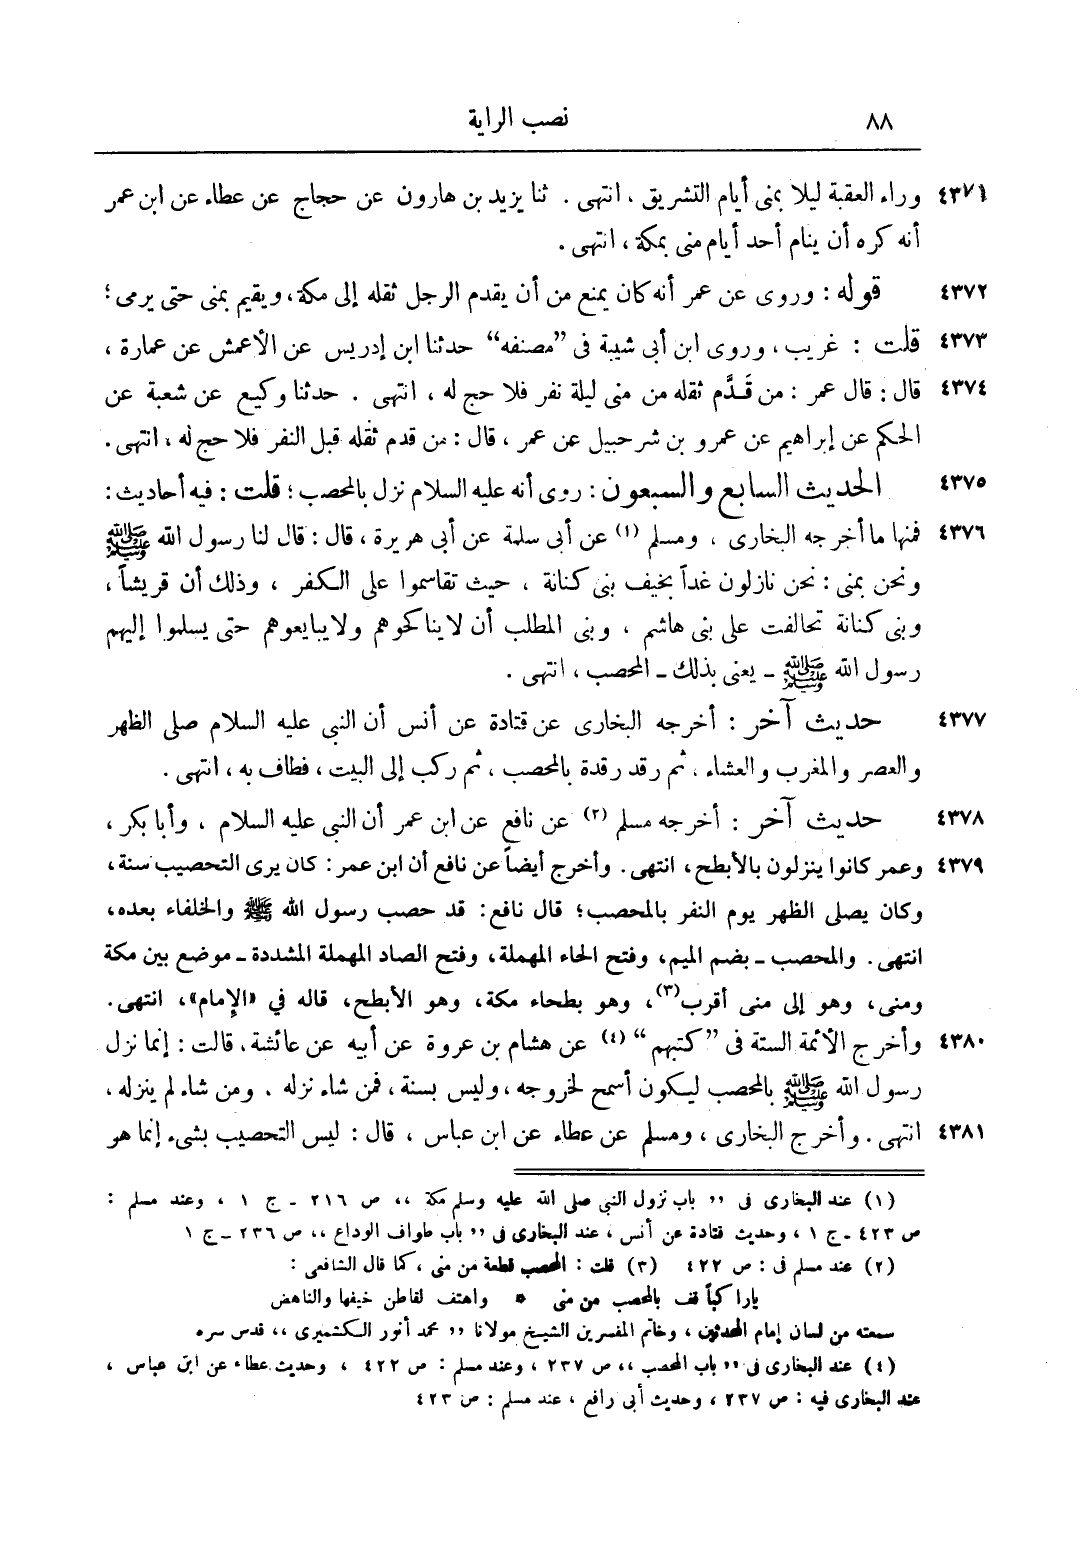 ٨٨ نصب الراية
٤٣٧١ وراء العقبة ليلا بمنى أيام التشريق ، انتهى . ثنا يزيد بن هارون عن حجاج عن عطاء عن ابن عمر
أنه كره أن ينام أحد أيام منى بمكة ، انتهى .
٤٣٧٢ قوله : وروى عن عمر أنه كان يمنع من أن يقدم الرجل ثقله إلى مكة ، ويقيم بمنى حتى يرمى ؛
٤٣٧٣ قلت : غريب ، وروى ابن أبى شيبة فى ”مصنفه“ حدثنا ابن إدريس عن الأعمش عن عمارة ،
٤٣٧٤ قال : قال عمر : من قَدَّم ثقله من منى ليلة نفر فلا حج له ، انتهى . حدثنا وكيع عن شعبة عن
الحكم عن إبراهيم عن عمرو بن شرحبيل عن عمر ، قال : من قدم ثقله قبل النفر فلا حج له ، انتهى .
٤٣٧٥ الحديث السابع والسبعون : روى أنه عليه السلام نزل بالمحصب ؛ قلت : فيه أحاديث :
٤٣٧٦ فمنها ما أخرجه البخارى ، ومسلم (١) عن أبى سلمة عن أبى هريرة ، قال : قال لنا رسول الله ﷺ
ونحن بمنى : نحن نازلون غداً بخيف بنى كنانة ، حيث تقاسموا على الكفر ، وذلك أن قريشاً ،
وبنى كنانة تحالفت على بنى هاشم ، وبنى المطلب أن لا يناكحوهم ولا يبايعوهم حتى يسلموا إليهم
رسول الله ﷺ ـ يعنى بذلك ـ المحصب ، انتهى .
٤٣٧٧ حديث آخر : أخرجه البخارى عن قتادة عن أنس أن النبي عليه السلام صلى الظهر
والعصر والمغرب والعشاء ، ثم رقد رقدة بالمحصب ، ثم ركب إلى البيت ، فطاف به ، انتهى .
٤٣٧٨ حديث آخر : أخرجه مسلم (٢) عن نافع عن ابن عمر أن النبي عليه السلام ، وأبا بكر ،
٤٣٧٩ وعمر كانوا ينزلون بالأبطح ، انتهى . وأخرج أيضاً عن نافع أن ابن عمر : كان يرى التحصيب سنة ،
وكان يصلى الظهر يوم النفر بالمحصب ؛ قال نافع : قد حصب رسول الله ﷺ والخلفاء بعده ،
انتهى . والمحصب ـ بضم الميم ، وفتح الحاء المهملة ، وفتح الصاد المهملة المشددة ـ موضع بين مكة
ومنى ، وهو إلى منى أقرب (٣) ، وهو بطحاء مكة ، وهو الأبطح ، قاله في «الإمام» ، انتهى .
٤٣٨٠ وأخرج الأئمة الستة فى ”كتبهم“ (٤) عن هشام بن عروة عن أبيه عن عائشة ، قالت : إنما نزل
رسول الله ﷺ بالمحصب ليكون أسمح لخروجه ، وليس بسنة ، فمن شاء نزله ، ومن شاء لم ينزله ،
٤٣٨١ انتهى . وأخرج البخارى ، ومسلم عن عطاء عن ابن عباس ، قال : ليس التحصيب بشىء إنما هو
(١) عند البخارى فى ,, باب نزول النبي صلى الله عليه وسلم مكة ،، ص ٢١٦ ـ ج ١ ، وعند مسلم :
ص ٤٢٣ ـ ج ١ ، وحديث قتادة عن أنس ، عند البخارى فى ,, باب طواف الوداع ،، ص ٢٣٦ ـ ج ١
(٢) عند مسلم فى : ص ٤٢٢ (٣) قلت : المحصب قطعة من منى ، كما قال الشافعى :
يا راكباً قف بالمحصب من منى * واهتف لقاطن خيفها والناهض
سمعته من لسان إمام المحدثين ، وخاتم المفسرين الشيخ مولانا ,, محمد أنور الكشميرى ،، قدس سره
(٤) عند البخارى فى ,, باب المحصب ،، ص ٢٣٧ ، وعند مسلم : ص ٤٢٢ ، وحديث عطاء عن ابن عباس ،
عند البخارى فيه : ص ٢٣٧ ، وحديث أبى رافع ، عند مسلم : ص ٤٢٣